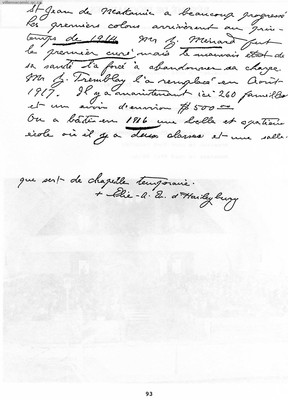 St Jean de Matamie a beaucoup progressé
les premiers colons arrivèrent au prin-
temps de 1914. Mr J. Ménard fut
le premier curé mais le mauvais état de
sa santé l'a forcé à abandonner sa charge.
Mr J. Tremblay l'a remplacé en Août
1917. Il y a maintenant ici 260 familles
et un avoir d'environ $500
On a bâti en 1916 une belle et spatieuse
école où il y a deux classes et une salle
que sert de chapelle temporaire.
+ Elie-A. L. d'Haileybury
93